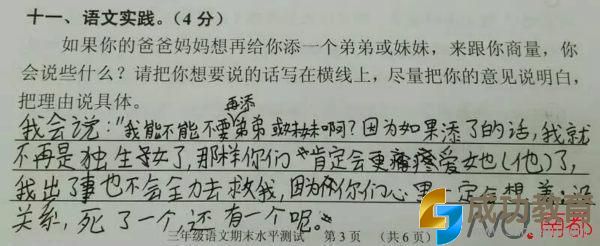 十一、语文实践。（4 分）
如果你的爸爸妈妈想再给你添一个弟弟或妹妹，来跟你商量，你
会说些什么？请把你想要说的话写在横线上，尽量把你的意见说明白，
把理由说具体。
再添
我会说："我能不能不要弟弟或妹妹啊？因为如果添了的话，我就
不再是独生女了，那样你们肯定会更疼爱她（他）了，
我出了事也不会全力去救我，因为你们心里一定会想着：没
关系，死了一个，还有一个呢。
三年级语文期末水平测试 第 3 页 （共 6 页）
成功教育
南都